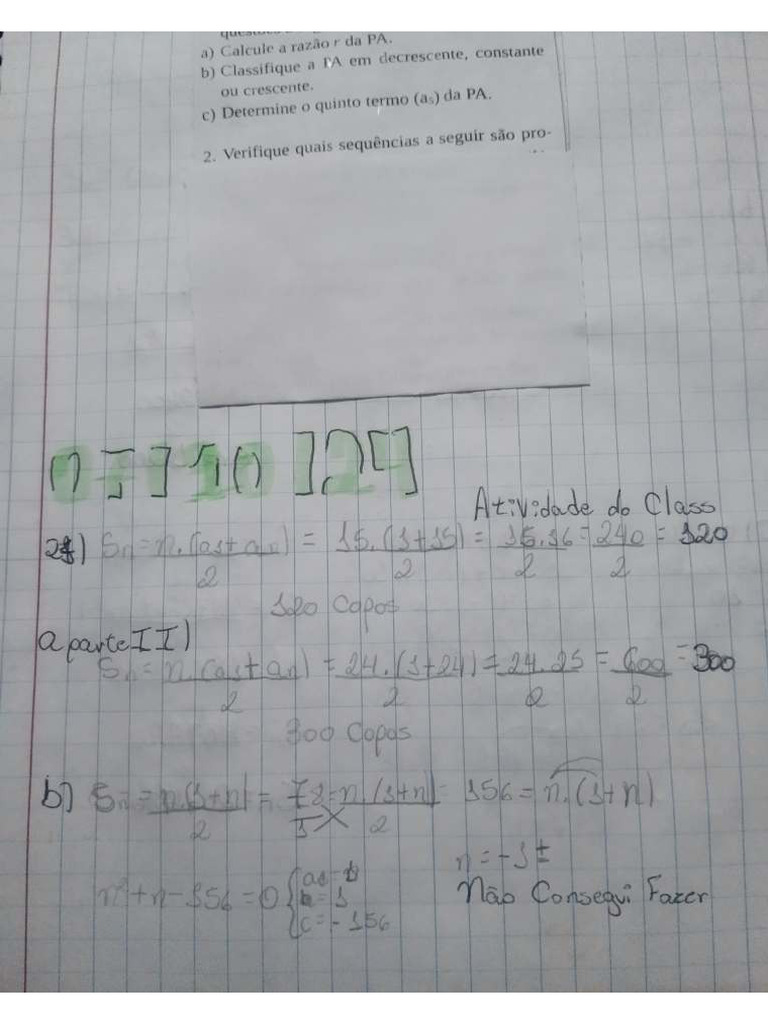 a) Calcule a razão r da PA.
b) Classifique a PA em decrescente, constante
ou crescente.
c) Determine o quinto termo (a₅) da PA.
2. Verifique quais sequências a seguir são pro-
Atividade do Class
2a) Sn = n.(a1+an)/2 = 15.(1+15)/2 = 15.16/2 = 240/2 = 120
120 Copos
a parte II)
Sn = n.(a1+an)/2 = 24.(1+24)/2 = 24.25/2 = 600/2 = 300
300 Copos
b) Sn = n.(1+n)/2 = 78/1 = n.(1+n)/2 156 = n.(1+n)
n = -1 ±
n²+n-156=0 { b = 1
c = -156
Não Consegui Fazer